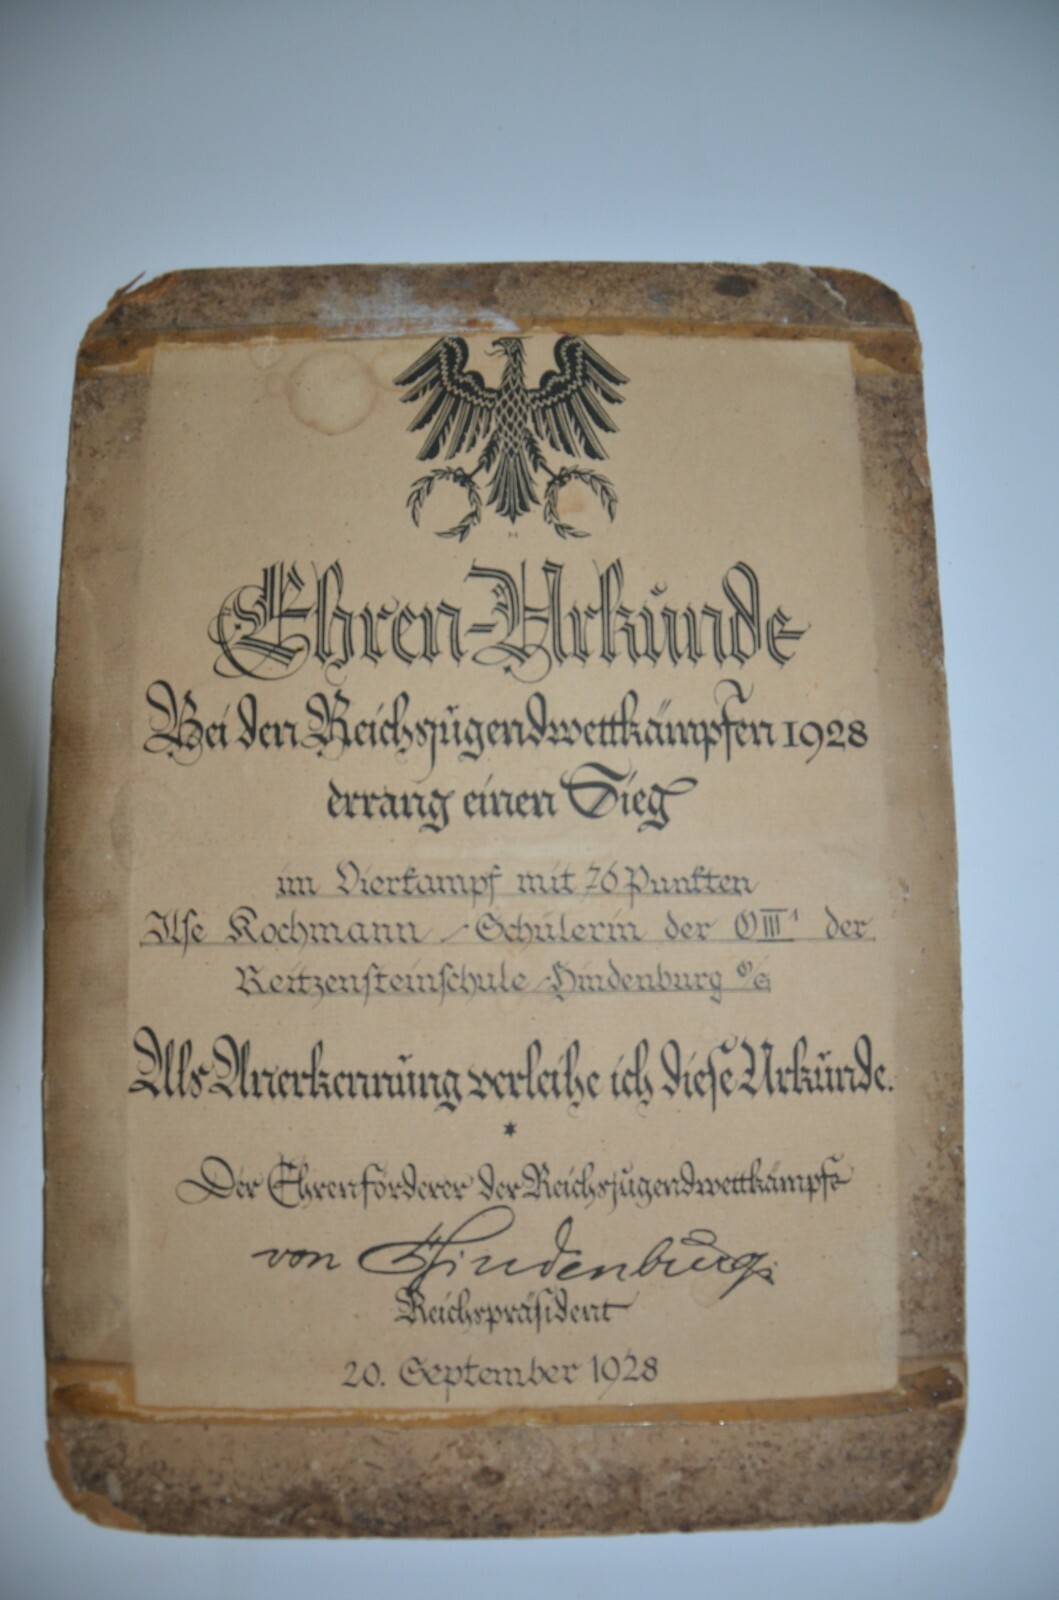 Ehren-Urkunde
Bei den Reichsjugendwettkämpfen 1928
errang einen Sieg
im Vierkampf mit 76 Punkten
Ilse Kochmann - Schülerin der OIII¹ der
Reitzensteinschule - Hindenburg O/S
Als Anerkennung verleihe ich diese Urkunde.
*
Der Ehrenförderer der Reichsjugendwettkämpfe
von Hindenburg
Reichspräsident
20. September 1928